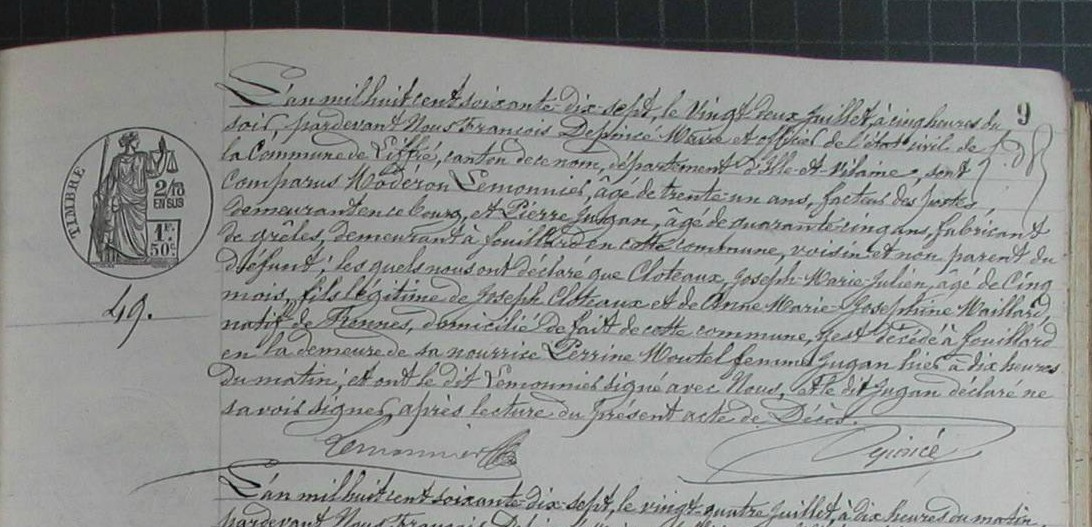 9
L'an mil huit cent soixante-dix-sept, le vingt deux Juillet, à cinq heures du
soir, pardevant Nous François Depincé Maire et officier de l'état civil de
la Commune de Liffré, canton de ce nom, département d'Ille-et-Vilaine, sont
Comparus Lemonnier, âgé de trente-un ans, facteur des postes
demeurant en ce bourg, et Pierre Jugan, âgé de quarante cinq ans, fabricant
de grêles, demeurant à fouillard en cette commune, voisin et non parent du
défunt; les quels nous ont déclaré que Cloteaux, Joseph-Marie-Julien, âgé de Cinq
mois, fils légitime de Joseph Clôteaux et de Anne Marie-Josephine Maillard,
natif de Rennes, domicilié de fait de cette commune, est décédé à fouillard
en la demeure de sa nourrice Perrine Moutel femme Jugan hier à dix heures
du matin; et ont le dit Lemonnier signé avec Nous, et le dit Jugan déclaré ne
savoir signer, après lecture du présent acte de Décès.
TIMBRE
2/10
EN SUS
1F.
50c.
49.
Lemonnier
Depincé
L'an mil huit cent soixante-dix-sept, le vingt-quatre Juillet, à dix heures du matin,
pardevant Nous François